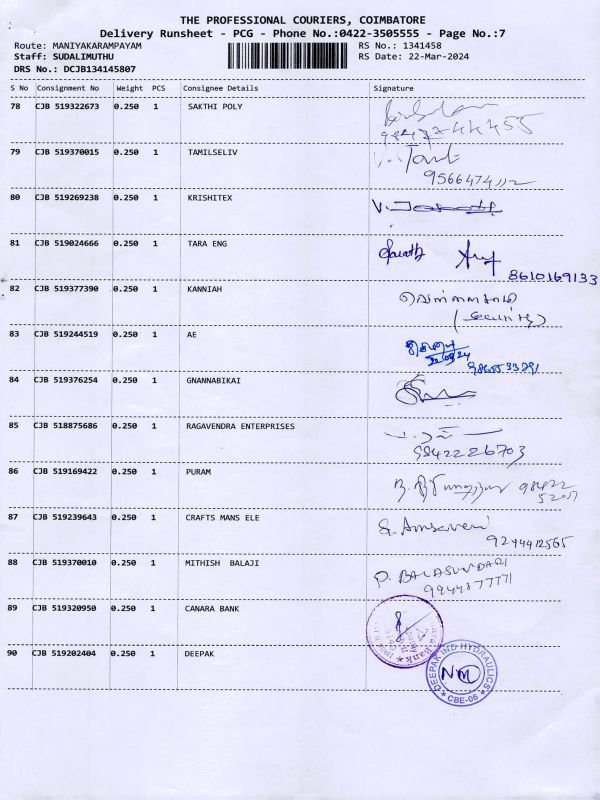 THE PROFESSIONAL COURIERS, COIMBATORE
Delivery Runsheet - PCG - Phone No.:0422-3505555 - Page No.:7
Route: MANIYAKARAMPAYAM RS No.: 1341458
Staff: SUDALIMUTHU RS Date: 22-Mar-2024
DRS No.: DCJB134145807
S No Consignment No Weight PCS Consignee Details Signature
78 CJB 519322673 0.250 1 SAKTHI POLY
79 CJB 519370015 1 0.250 TAMILSELIV
9566474112
80 CJB 519269238 0.250 1 KRISHITEX
81 CJB 519024666 0.250 1 TARA ENG
8610169133
82 CJB 519377390 0.250 1 KANNIAH
(Security)
83 CJB 519244519 0.250 1 AE
22/03/24
84 CJB 519376254 0.250 1 GNANNABIKAI
85 CJB 518875686 0.250 1 RAGAVENDRA ENTERPRISES
9842226703
86 CJB 519169422 0.250 1 PURAM
98422
87 CJB 519239643 0.250 1 CRAFTS MANS ELE
9244412565
88 CJB 519370010 0.250 1 MITHISH BALAJI P. BALASUNDARI
89 CJB 519320950 0.250 1 CANARA BANK
90 CJB 519202404 0.250 1 DEEPAK
DEEPAK IND HYDRAULICS
NM
CBE-06